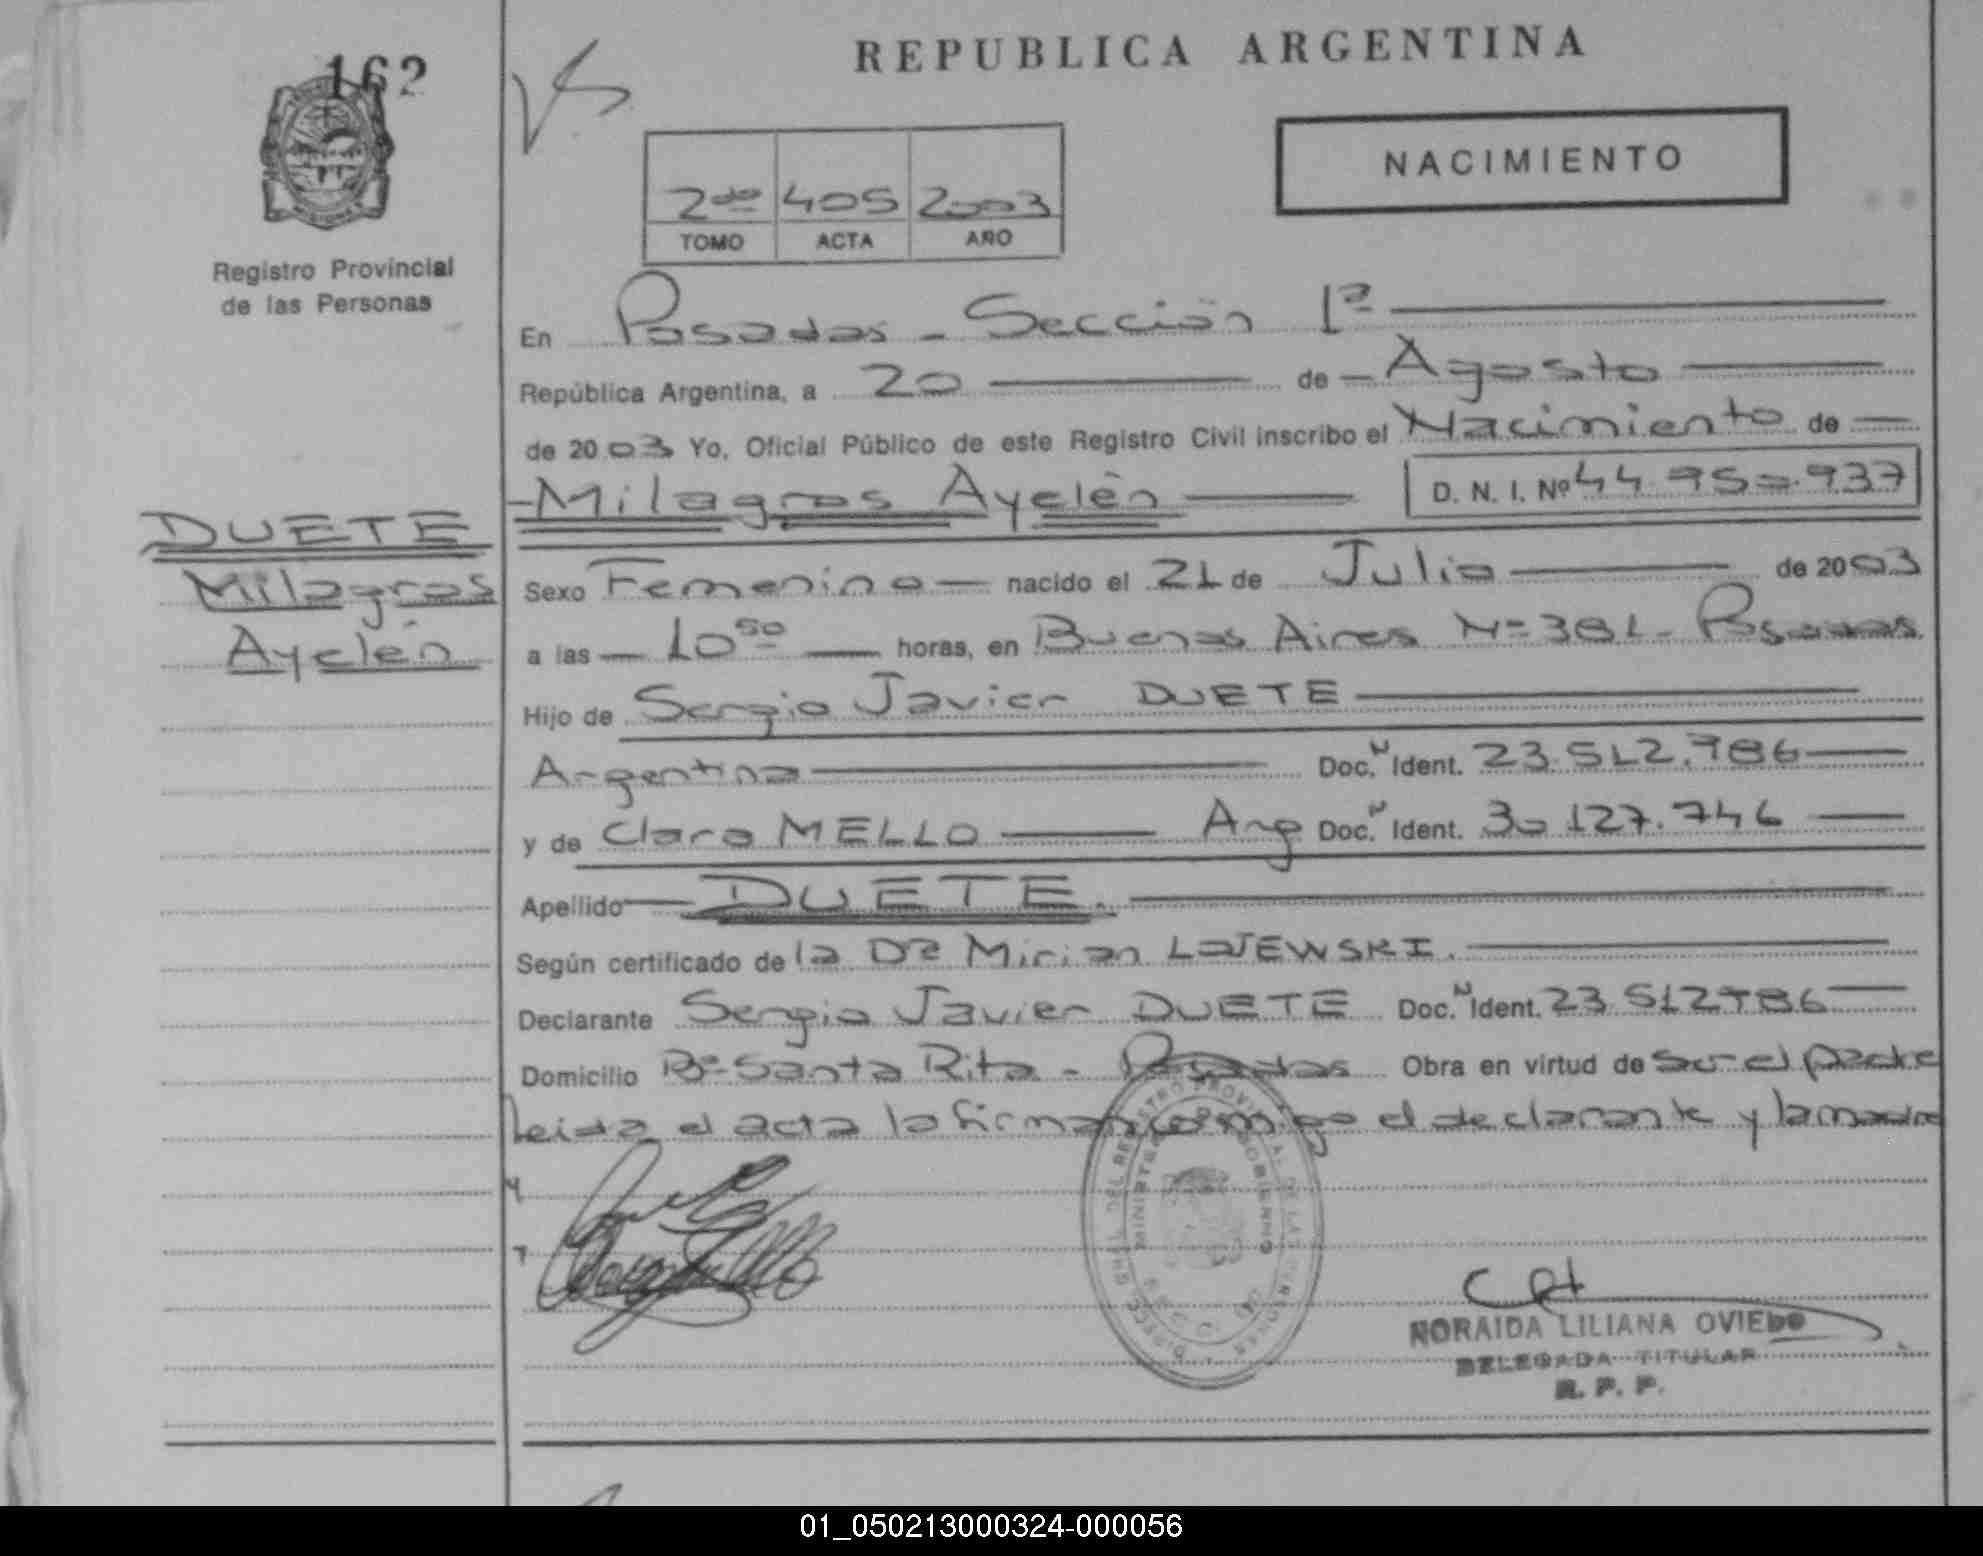 162
REPUBLICA ARGENTINA
NACIMIENTO
2do 405 2003
TOMO ACTA AÑO
Registro Provincial
de las Personas
En Posadas - Sección 1ª
República Argentina, a 20 de Agosto
de 2003 Yo, Oficial Público de este Registro Civil inscribo el Nacimiento de
Milagros Ayelén D. N. I. Nº 44.950.937
DUETE
Milagros
Ayelén
Sexo Femenino nacido el 21 de Julio de 2003
a las 10 50 horas, en Buenos Aires Nº 381 - Posadas
Hijo de Sergio Javier DUETE
Argentina Doc. N Ident. 23.512.786
y de Clara MELLO Arg Doc. N Ident. 30.127.746
Apellido DUETE.
Según certificado de la Dra Mirian LAJEWSKI.
Declarante Sergio Javier DUETE Doc. N Ident. 23.512786
Domicilio Bº Santa Rita - Posadas Obra en virtud de ser el padre
Leida el acta la firman conmigo el declarante y la madre
NORAIDA LILIANA OVIEDO
DELEGADA TITULAR
R. P. P.
01_050213000324-000056